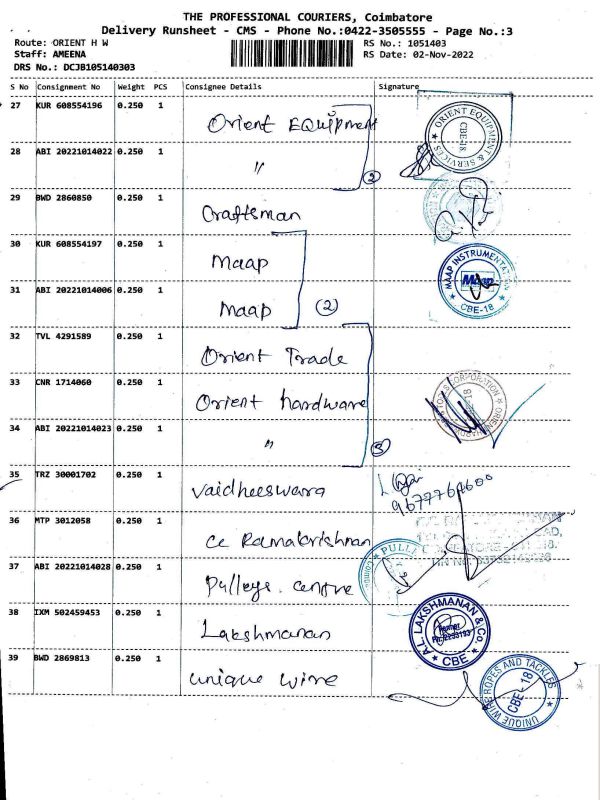 THE PROFESSIONAL COURIERS, Coimbatore
Delivery Runsheet - CMS - Phone No.:0422-3505555 - Page No.:3
Route: ORIENT H W RS No.: 1051403
Staff: AMEENA RS Date: 02-Nov-2022
DRS No.: DCJB105140303
S No Consignment No Weight PCS Consignee Details Signature
27 KUR 608554196 0.250 1 Orient Equipment
ORIENT EQUIPMENT & SERVICES CBE-18
28 ABI 20221014022 0.250 1 "
2
29 BWD 2860850 0.250 1 Craftsman
30 KUR 608554197 0.250 1 Maap
MAAP INSTRUMENTATION Maap CBE-18
31 ABI 20221014006 0.250 1 Maap
2
32 TVL 4291589 0.250 1 Orient Trade
33 CNR 1714060 0.250 1 Orient hardware
CORPORATION
34 ABI 20221014023 0.250 1 "
3
35 TRZ 30001702 0.250 1 Vaidheeswara
36 MTP 3012058 0.250 1 CC Ramakrishnan
37 ABI 20221014028 0.250 1 Pulleys centre
38 IXM 502459453 0.250 1 Lakshmanan
A.L. LAKSHMANAN & Co. CBE
39 BWD 2869813 0.250 1 Unique Wire
UNIQUE WIRE ROPES AND TACKLES CBE-18